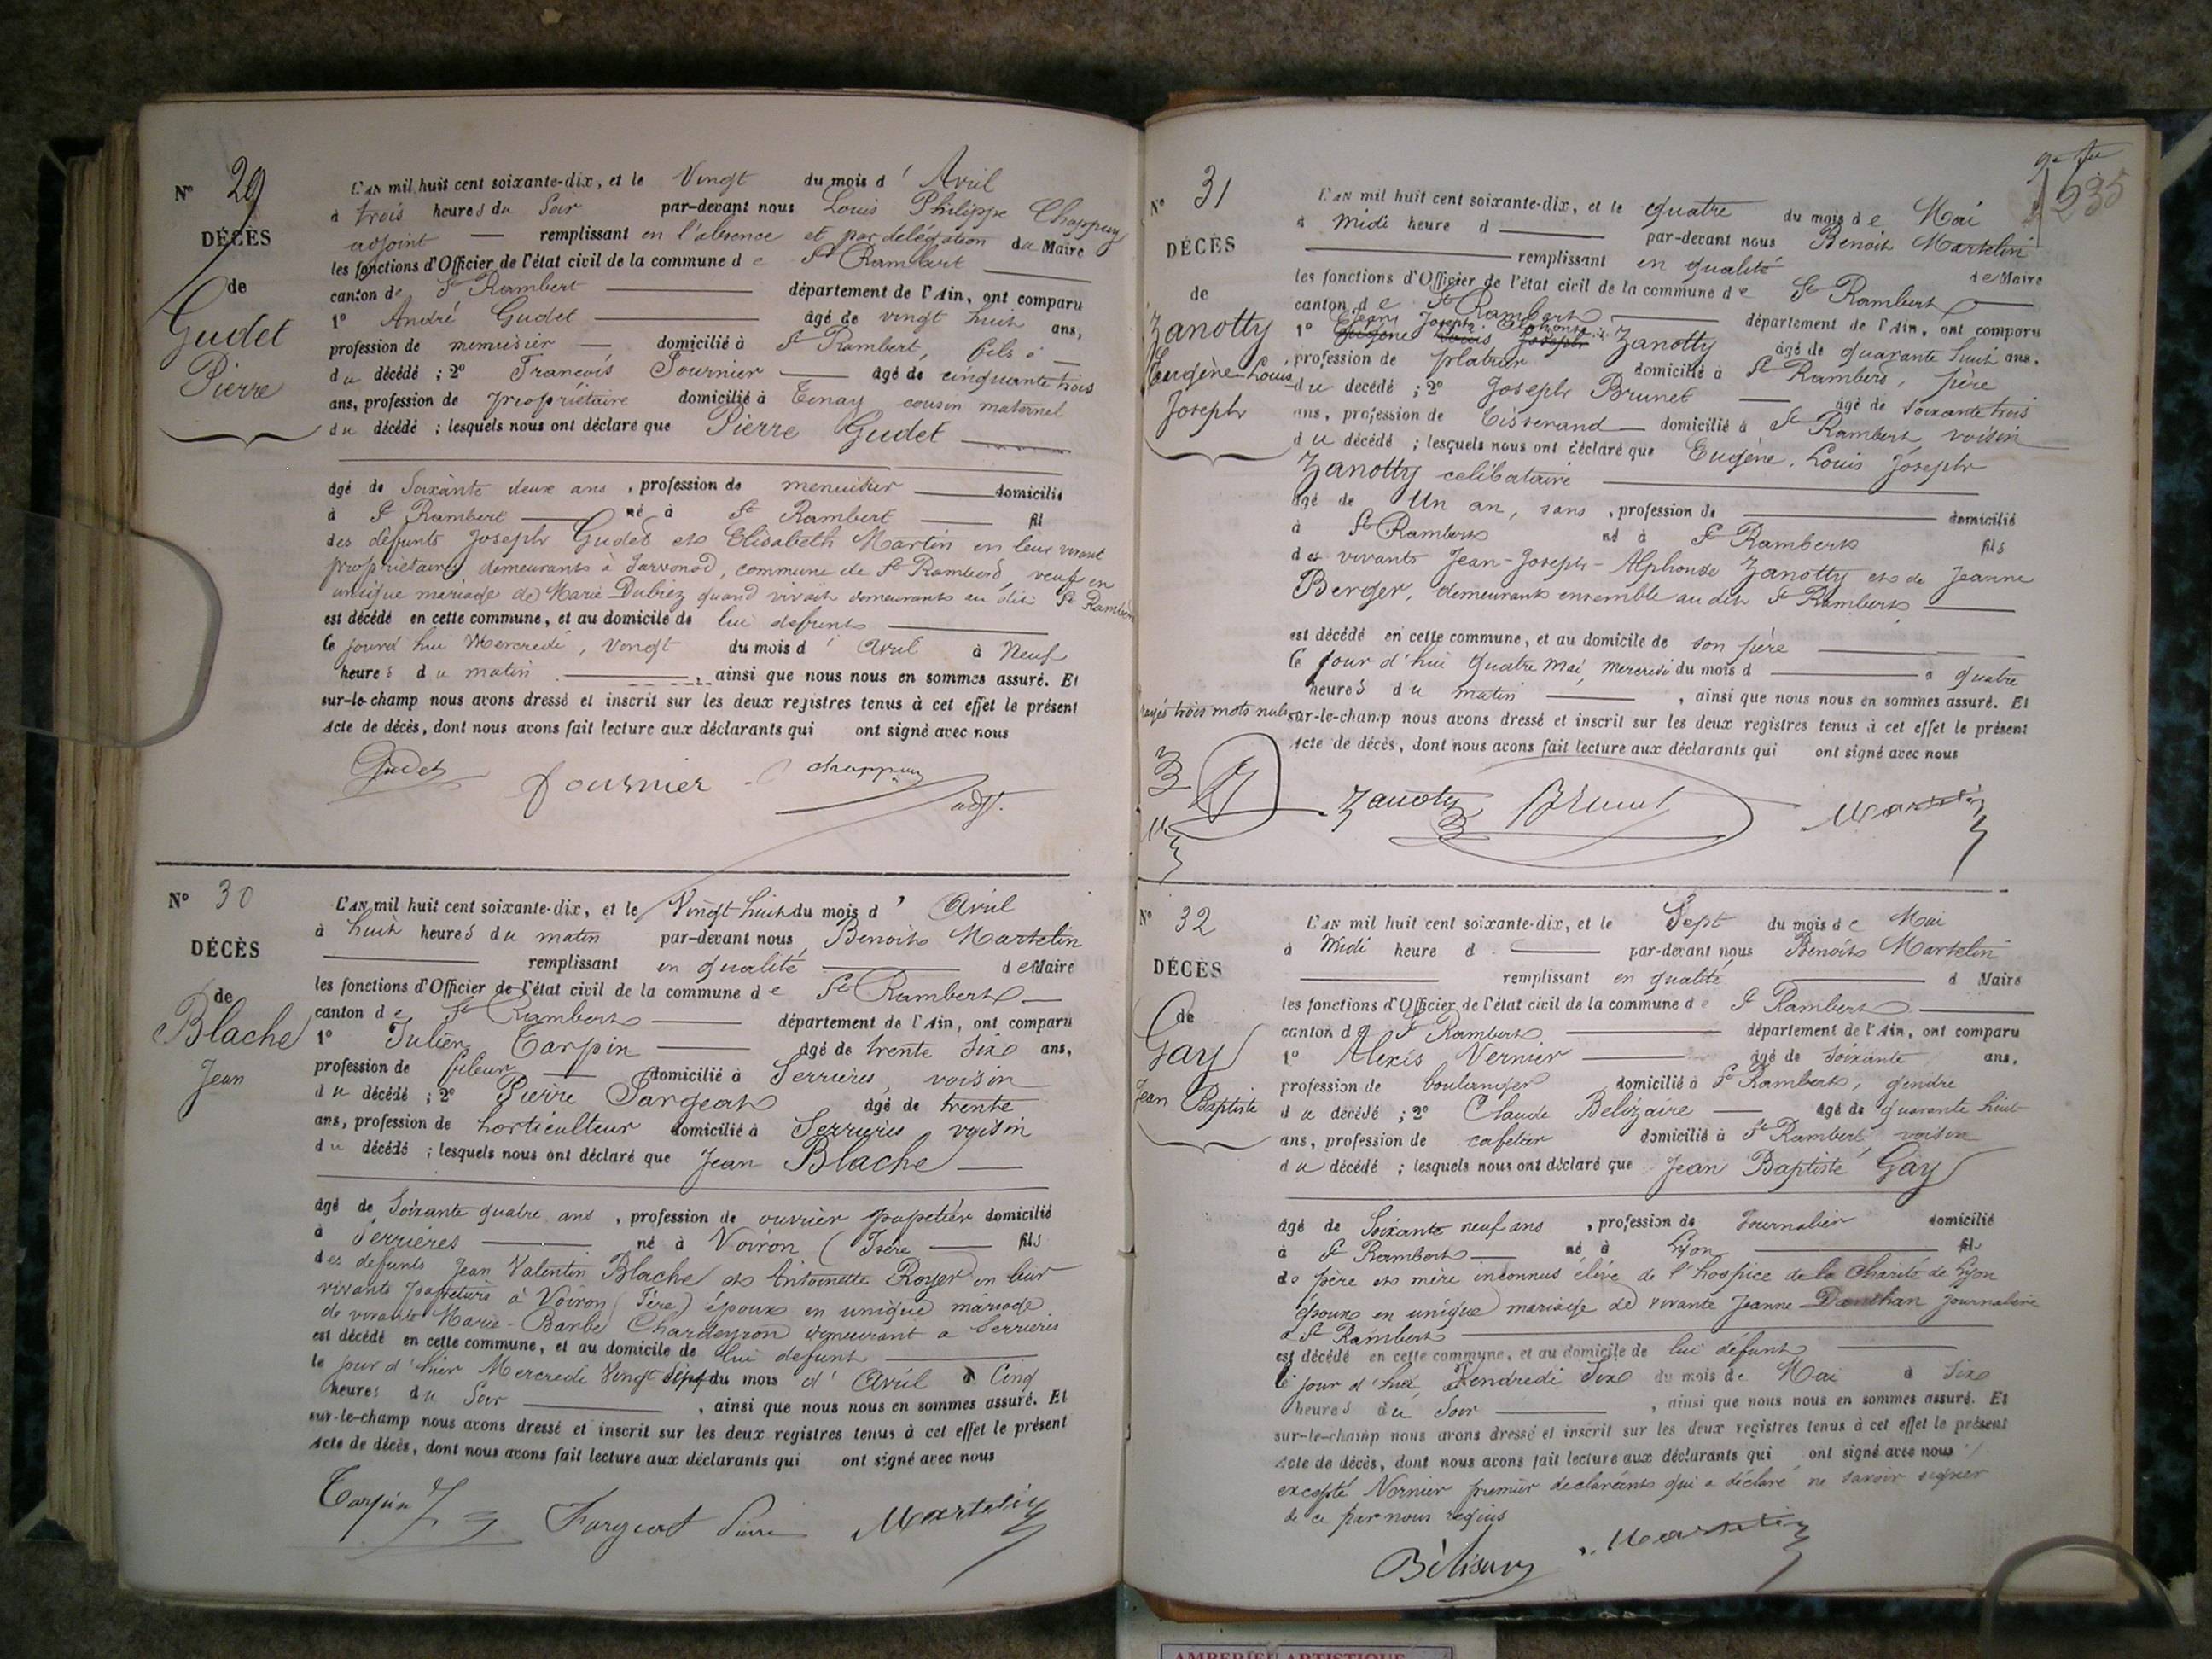 N° 29
DÉCÈS
de
Gudet
Pierre
L'AN mil huit cent soixante-dix, et le Vingt du mois d' Avril
à trois heures du Soir par-devant nous Louis Philippe Chappuy
adjoint — remplissant en l'absence et par délégation du Maire
les fonctions d'Officier de l'état civil de la commune de St Rambert
canton de St Rambert département de l'Ain, ont comparu
1° André Gudet âgé de vingt huit ans,
profession de menuisier — domicilié à St Rambert, fils
du décédé ; 2° François Fournier — âgé de cinquante trois
ans, profession de propriétaire domicilié à Tenay cousin maternel
du décédé ; lesquels nous ont déclaré que Pierre Gudet
âgé de Soixante deux ans, profession de menuisier domicilié
à St Rambert né à St Rambert fil
des défunts Joseph Gudet et Elisabeth Martin en leur vivant
propriétaires demeurants à , commune de St Rambert, veuf en
unique mariage de Marie Dubiez quand vivait demeurants au dit St Rambert
est décédé en cette commune, et au domicile de lui defunt
le jourd'hui Mercredi, Vingt du mois d' Avril à Neuf
heures du matin ainsi que nous nous en sommes assuré. Et
sur-le-champ nous avons dressé et inscrit sur les deux registres tenus à cet effet le présent
Acte de décès, dont nous avons fait lecture aux déclarants qui ont signé avec nous
Gudet fournier chappuy
adjt.
N° 30
DÉCÈS
de
Blache
Jean
L'AN mil huit cent soixante-dix, et le Vingt huit du mois d' Avril
à huit heures du matin par-devant nous Benoit Martelin
remplissant en qualité de Maire
les fonctions d'Officier de l'état civil de la commune de St Rambert
canton de St Rambert département de l'Ain, ont comparu
1° Julien Tarpin âgé de trente Six ans,
profession de fileur — domicilié à Serrières, voisin
du décédé ; 2° Pierre Fargeat âgé de trente
ans, profession de horticulteur domicilié à Serrières voisin
du décédé ; lesquels nous ont déclaré que Jean Blache
âgé de Soixante quatre ans, profession de ouvrier papetier domicilié
à Serrières né à Voiron (Isère fils
des defunts Jean Valentin Blache et Antoinette Royer en leur
vivants papetiers à Voiron (Isère) époux en unique mariage
de vivante Marie-Barbe Chardeyron demeurant a Serrieres
est décédé en cette commune, et au domicile de lui defunt
le jour d'hier Mercredi Vingt Sept du mois d' Avril à Cinq
heures du Soir, ainsi que nous nous en sommes assuré. Et
sur-le-champ nous avons dressé et inscrit sur les deux registres tenus à cet effet le présent
Acte de décès, dont nous avons fait lecture aux déclarants qui ont signé avec nous
Tarpin J Fargeat Pierre Martelin
235
N° 31
DÉCÈS
de
Zanotty
Eugène-Louis
Joseph
L'AN mil huit cent soixante-dix, et le quatre du mois de Mai
à Midi heure d par-devant nous Benoit Martelin
remplissant en qualité de Maire
les fonctions d'Officier de l'état civil de la commune de St Rambert
canton de St Rambert département de l'Ain, ont comparu
Jean Joseph Alphonse
1° Eugène Louis Joseph Zanotty âgé de quarante huit ans.
profession de platrier domicilié à St Rambert, père
du décédé ; 2° Joseph Brunet — âgé de soixante trois
ans, profession de Tisserand — domicilié à St Rambert, voisin
du décédé ; lesquels nous ont déclaré que Eugène, Louis Joseph
Zanotty celibataire
âgé de Un an, sans, profession de domicilié
à St Rambert né à St Rambert fils
des vivants Jean-Joseph-Alphonse Zanotty et de Jeanne
Berger, demeurants ensemble au dit St Rambert
est décédé en cette commune, et au domicile de son père
le jour d'hui quatre Mai, mercredi du mois d à quatre
heures du matin, ainsi que nous nous en sommes assuré. Et
rayés trois mots nuls sur-le-champ nous avons dressé et inscrit sur les deux registres tenus à cet effet le présent
Acte de décès, dont nous avons fait lecture aux déclarants qui ont signé avec nous
Zanotty Brunet Martelin
N° 32
DÉCÈS
de
Gay
Jean Baptiste
L'AN mil huit cent soixante-dix, et le Sept du mois de Mai
à Midi heure d par-devant nous Benoit Martelin
remplissant en qualité d Maire
les fonctions d'Officier de l'état civil de la commune de St Rambert
canton de St Rambert département de l'Ain, ont comparu
1° Alexis Vernier âgé de Soixante ans.
profession de boulanger domicilié à St Rambert, gendre
du décédé ; 2° Claude Belizaire — âgé de quarante huit
ans, profession de cafetier domicilié à St Rambert, voisin
du décédé ; lesquels nous ont déclaré que Jean Baptiste Gay
âgé de Soixante neuf ans, profession de Journalier domicilié
à St Rambert né à Lyon fils
de père et mère inconnus élève de l'hospice de la Charité de Lyon
époux en unique mariage de vivante Jeanne Journalière
à St Rambert
est décédé en cette commune, et au domicile de lui défunt
le jour d'hier, Vendredi Six du mois de Mai à Six
heures du Soir, ainsi que nous nous en sommes assuré. Et
sur-le-champ nous avons dressé et inscrit sur les deux registres tenus à cet effet le présent
Acte de décès, dont nous avons fait lecture aux déclarants qui ont signé avec nous
excepté Vernier premier declarants qui a déclaré ne savoir signer
de ce par nous requis
Bélisaire Martelin
AMBERIEU ARTISTIQUE